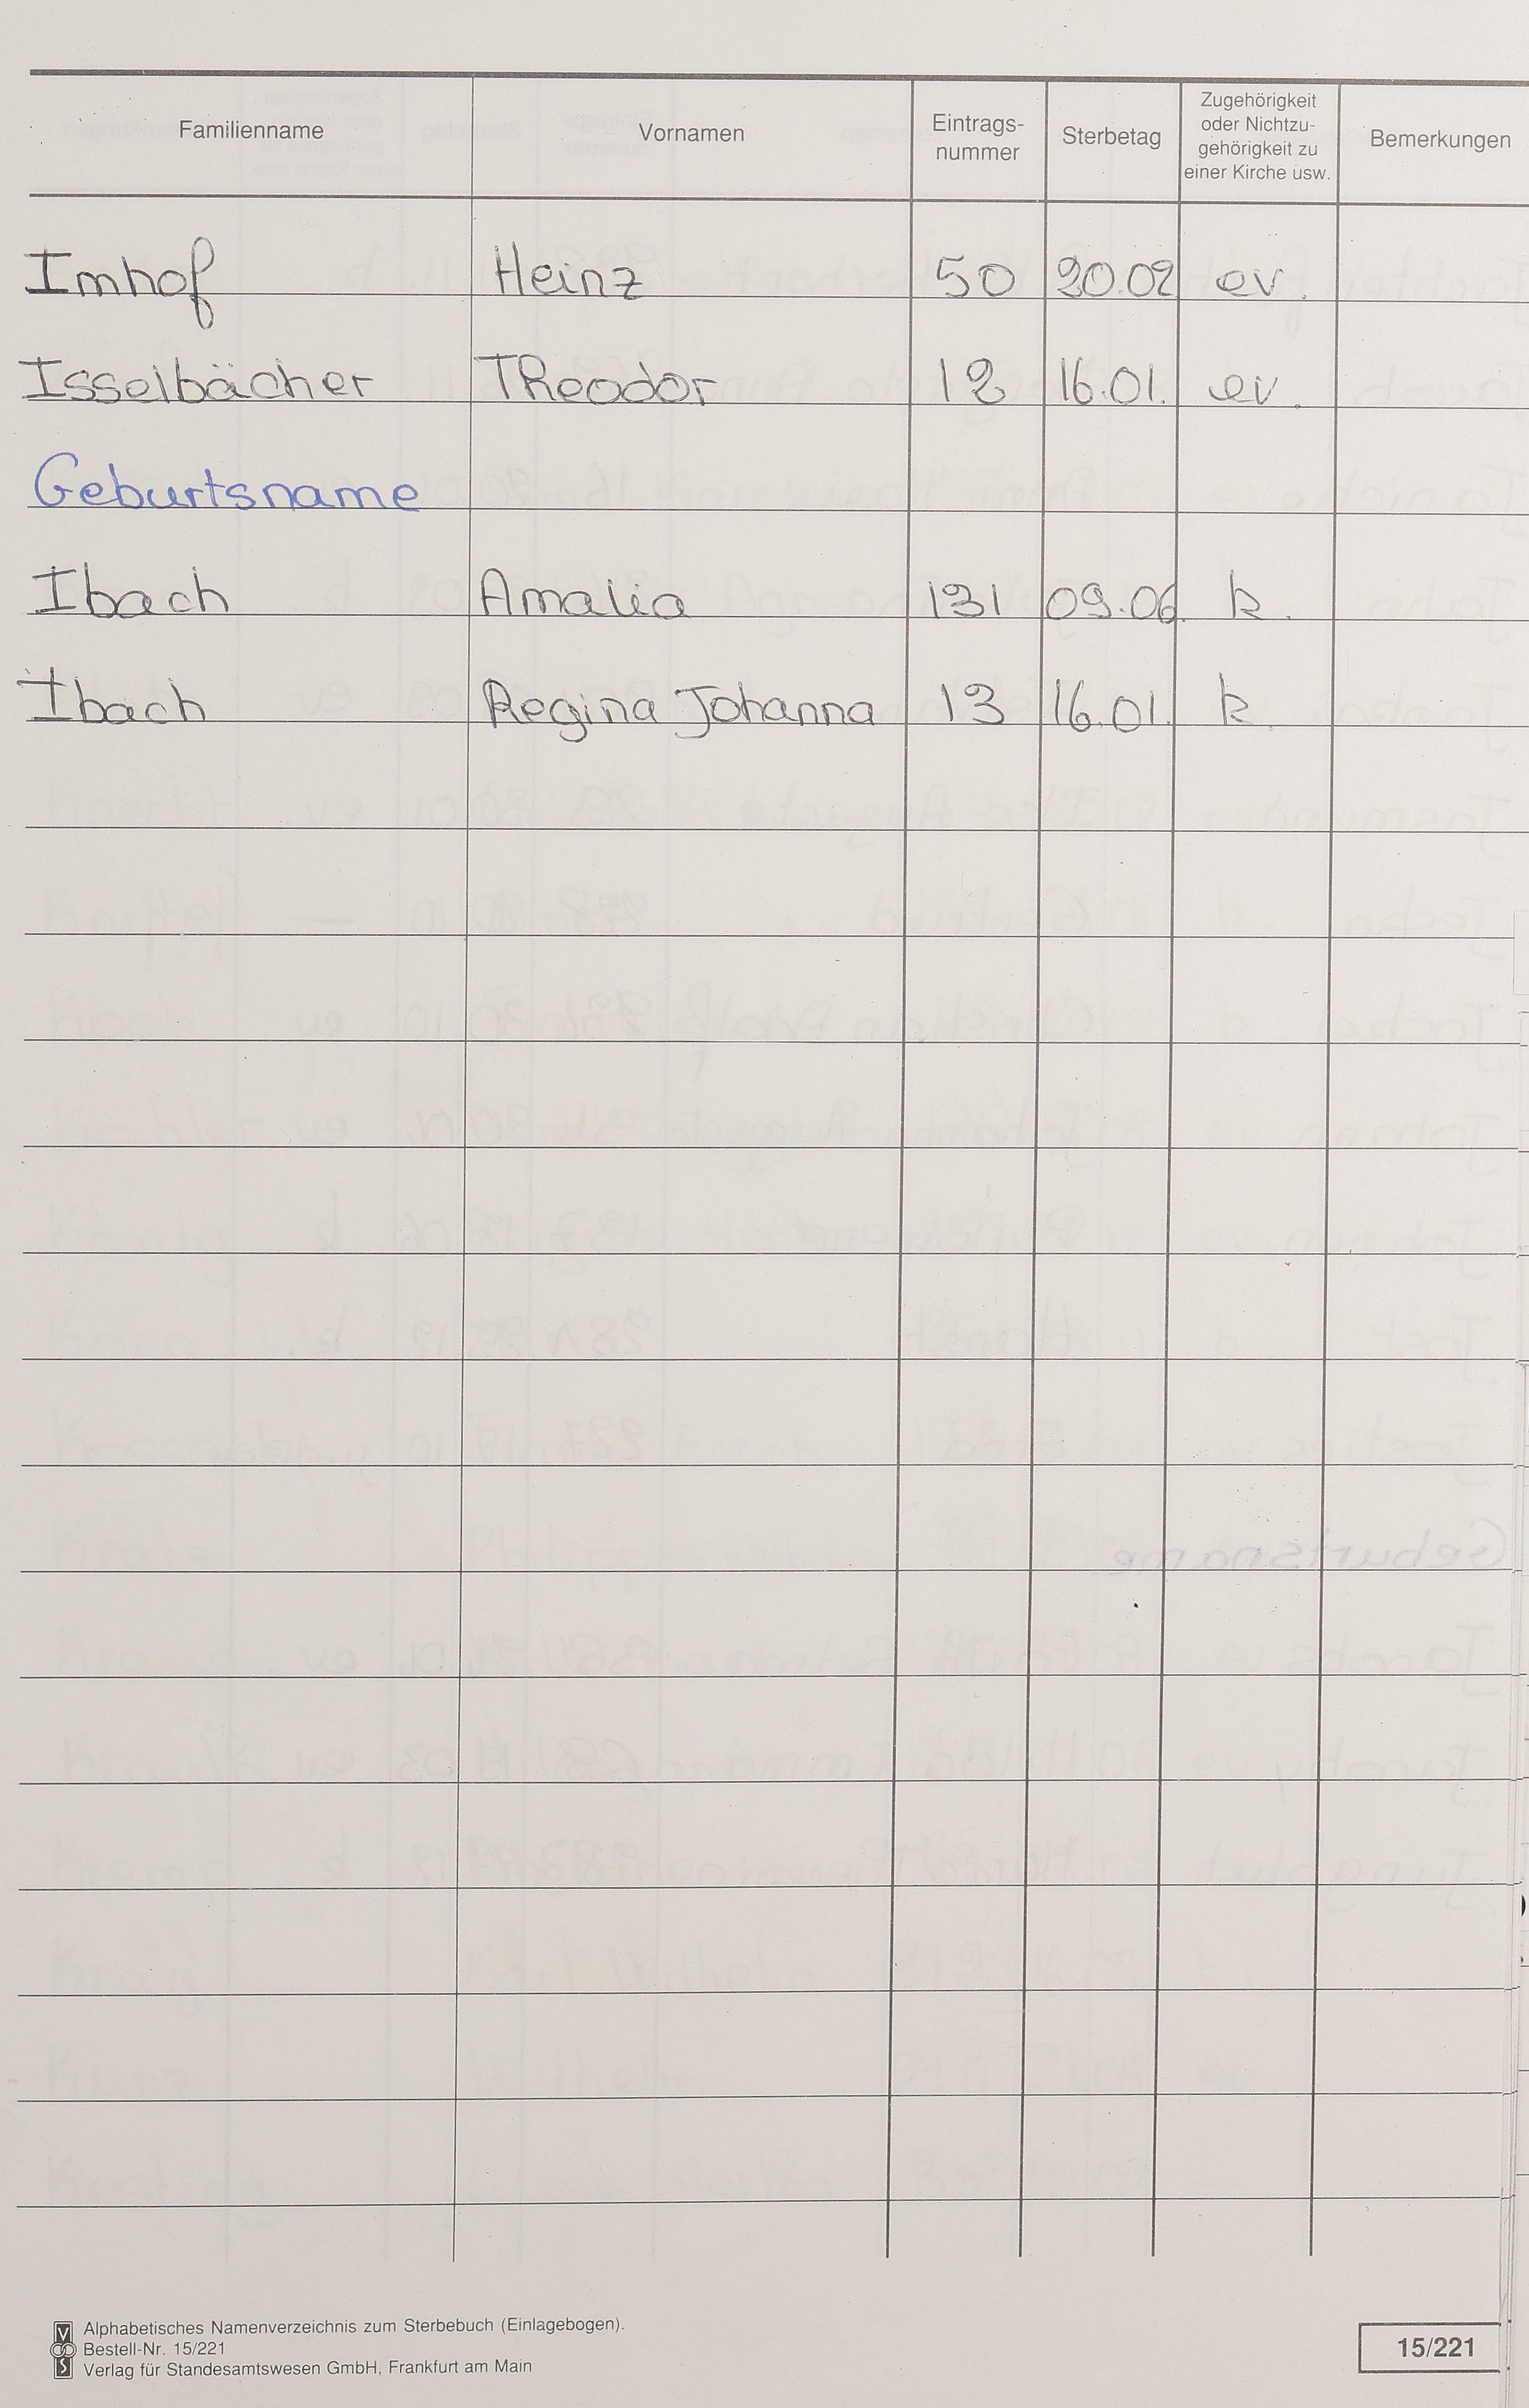 Familienname Vornamen Eintrags-nummer Sterbetag Zugehörigkeit oder Nichtzu-gehörigkeit zu einer Kirche usw. Bemerkungen
Imhof Heinz 50 20.02 ev.
Isselbächer Theodor 12 16.01. ev.
Geburtsname
Ibach Amalia 131 09.06. k.
Ibach Regina Johanna 13 16.01. k
Alphabetisches Namenverzeichnis zum Sterbebuch (Einlagebogen).
Bestell-Nr. 15/221
Verlag für Standesamtswesen GmbH, Frankfurt am Main
15/221